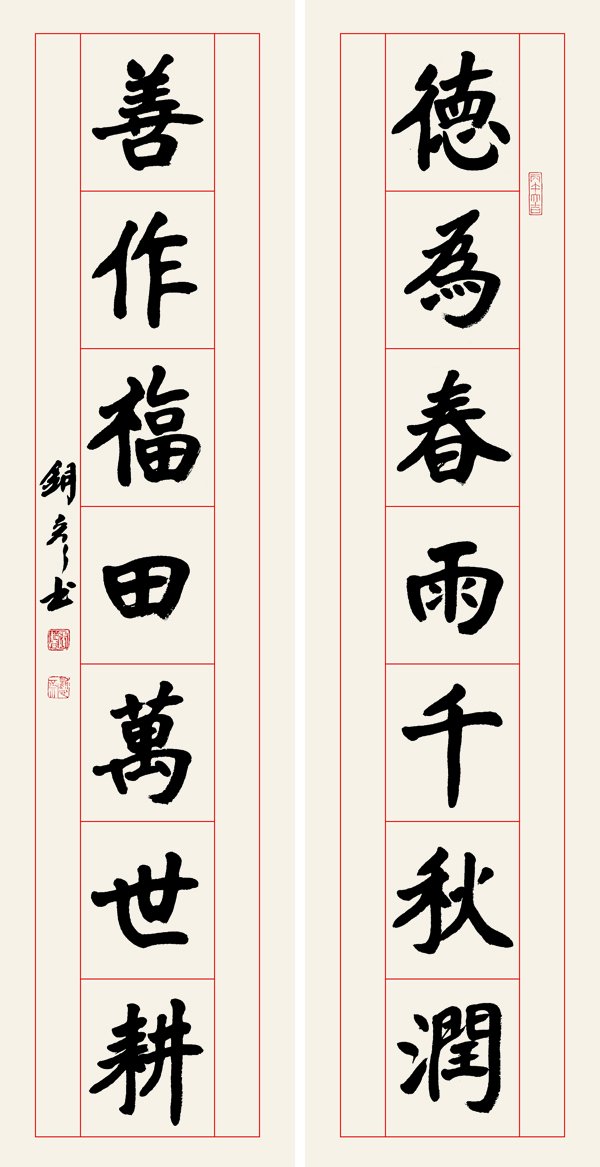 德為春雨千秋潤
善作福田萬世耕
銅彥書